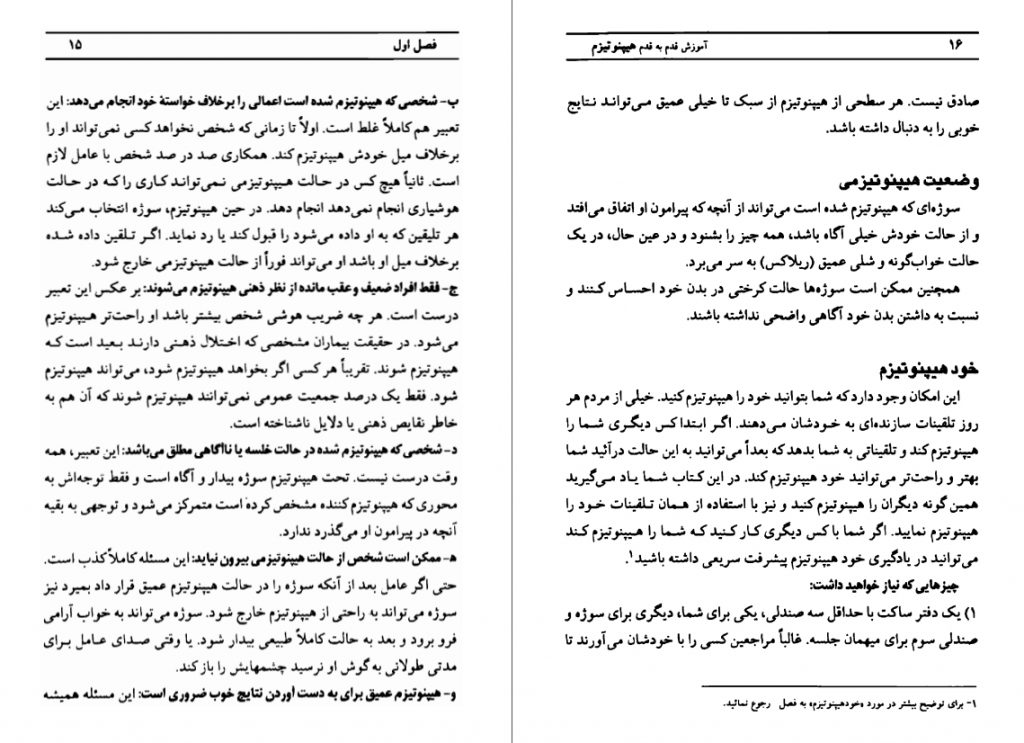 ۱۵ فصل اول
ب- شخصی که هیپنوتیزم شده است اعمالی را برخلاف خواستهٔ خود انجام می‌دهد: این
تعبیر هم کاملاً غلط است. اولاً تا زمانی که شخص نخواهد کسی نمی‌تواند او را
برخلاف میل خودش هیپنوتیزم کند. همکاری صد در صد شخص با عامل لازم
است. ثانیاً هیچ کس در حالت هیپنوتیزمی نمی‌تواند کاری را که در حالت
هوشیاری انجام نمی‌دهد انجام دهد. در حین هیپنوتیزم، سوژه انتخاب می‌کند
هر تلیقین که به او داده می‌شود را قبول کند یا رد نماید. اگر تلقین داده شده
برخلاف میل او باشد او می‌تواند فوراً از حالت هیپنوتیزمی خارج شود.
ج- فقط افراد ضعیف و عقب مانده از نظر ذهنی هیپنوتیزم می‌شوند: بر عکس این تعبیر
درست است. هر چه ضریب هوشی شخص بیشتر باشد او راحت‌تر هیپنوتیزم
می‌شود. در حقیقت بیماران مشخصی که اختلال ذهنی دارند بعید است که
هیپنوتیزم شوند. تقریباً هر کسی اگر بخواهد هیپنوتیزم شود، می‌تواند هیپنوتیزم
شود. فقط یک درصد جمعیت عمومی نمی‌توانند هیپنوتیزم شوند که آن هم به
خاطر نقایص ذهنی یا دلایل ناشناخته است.
د- شخصی که هیپنوتیزم شده در حالت خلسه یا ناآگاهی مطلق می‌باشد: این تعبیر، همه
وقت درست نیست. تحت هیپنوتیزم سوژه بیدار و آگاه است و فقط توجه‌اش به
محوری که هیپنوتیزم کننده مشخص کرده است متمرکز می‌شود و توجهی به بقیه
آنچه در پیرامون او می‌گذرد ندارد.
ه- ممکن است شخص از حالت هیپنوتیزمی بیرون نیاید: این مسئله کاملاً کذب است.
حتی اگر عامل بعد از آنکه سوژه را در حالت هیپنوتیزم عمیق قرار داد بمیرد نیز
سوژه می‌تواند به راحتی از هیپنوتیزم خارج شود. سوژه می‌تواند به خواب آرامی
فرو برود و بعد به حالت کاملاً طبیعی بیدار شود. یا وقتی صدای عامل برای
مدتی طولانی به گوش او نرسید چشمهایش را باز کند.
و- هیپنوتیزم عمیق برای به دست آوردن نتایج خوب ضروری است: این مسئله همیشه
۱۶ آموزش قدم به قدم هیپنوتیزم
صادق نیست. هر سطحی از هیپنوتیزم از سبک تا خیلی عمیق می‌تواند نتایج
خوبی را به دنبال داشته باشد.
وضعیت هیپنوتیزمی
سوژه‌ای که هیپنوتیزم شده است می‌تواند از آنچه که پیرامون او اتفاق می‌افتد
و از حالت خودش خیلی آگاه باشد، همه چیز را بشنود و در عین حال، در یک
حالت خواب‌گونه و شلی عمیق (ریلاکس) به سر می‌برد.
همچنین ممکن است سوژه‌ها حالت کرختی در بدن خود احساس کنند و
نسبت به داشتن بدن خود آگاهی واضحی نداشته باشند.
خود هیپنوتیزم
این امکان وجود دارد که شما بتوانید خود را هیپنوتیزم کنید. خیلی از مردم هر
روز تلقینات سازنده‌ای به خودشان می‌دهند. اگر ابتدا کس دیگری شما را
هیپنوتیزم کند و تلقیناتی به شما بدهد که بعداً می‌توانید به این حالت درآئید شما
بهتر و راحت‌تر می‌توانید خود هیپنوتیزم کند. در این کتاب شما یاد می‌گیرید
همین گونه دیگران را هیپنوتیزم کنید و نیز با استفاده از همان تلقینات خود را
هیپنوتیزم نمایید. اگر شما با کس دیگری کار کنید که شما را هیپنوتیزم کند
می‌توانید در یادگیری خود هیپنوتیزم پیشرفت سریعی داشته باشید۱.
چیزهایی که نیاز خواهید داشت:
۱) یک دفتر ساکت با حداقل سه صندلی، یکی برای شما، دیگری برای سوژه و
صندلی سوم برای میهمان جلسه. غالباً مراجعین کسی را با خودشان می‌آورند تا
۱- برای توضیح بیشتر در مورد «خودهیپنوتیزم» به فصل رجوع نمائید.